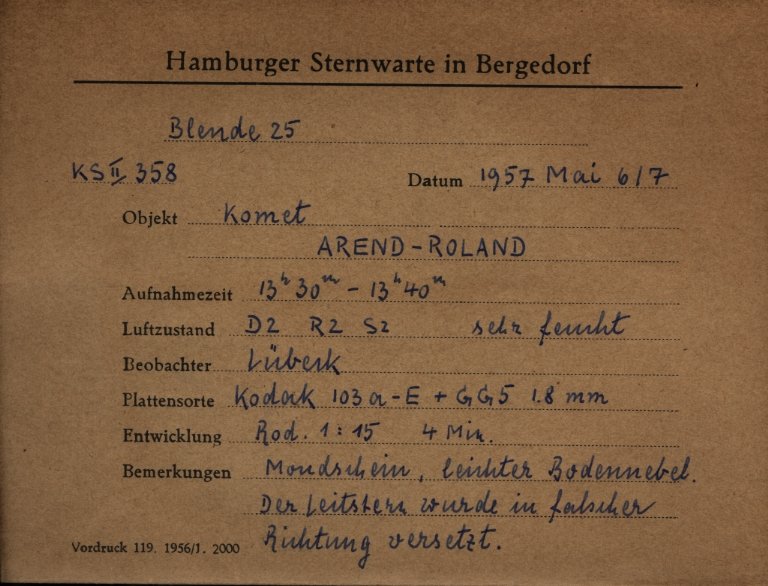 Hamburger Sternwarte in Bergedorf
Blende 25
KS II 358 Datum 1957 Mai 6/7
Objekt Komet
AREND-ROLAND
Aufnahmezeit 13h 30m - 13h 40m
Luftzustand D2 R2 S2 sehr feucht
Beobachter Lübeck
Plattensorte Kodak 103a-E + GG5 1.8 mm
Entwicklung Rod. 1:15 4 Min.
Bemerkungen Mondschein, leichter Bodennebel.
Der Leitstern wurde in falscher
Richtung versetzt.
Vordruck 119. 1956/1. 2000